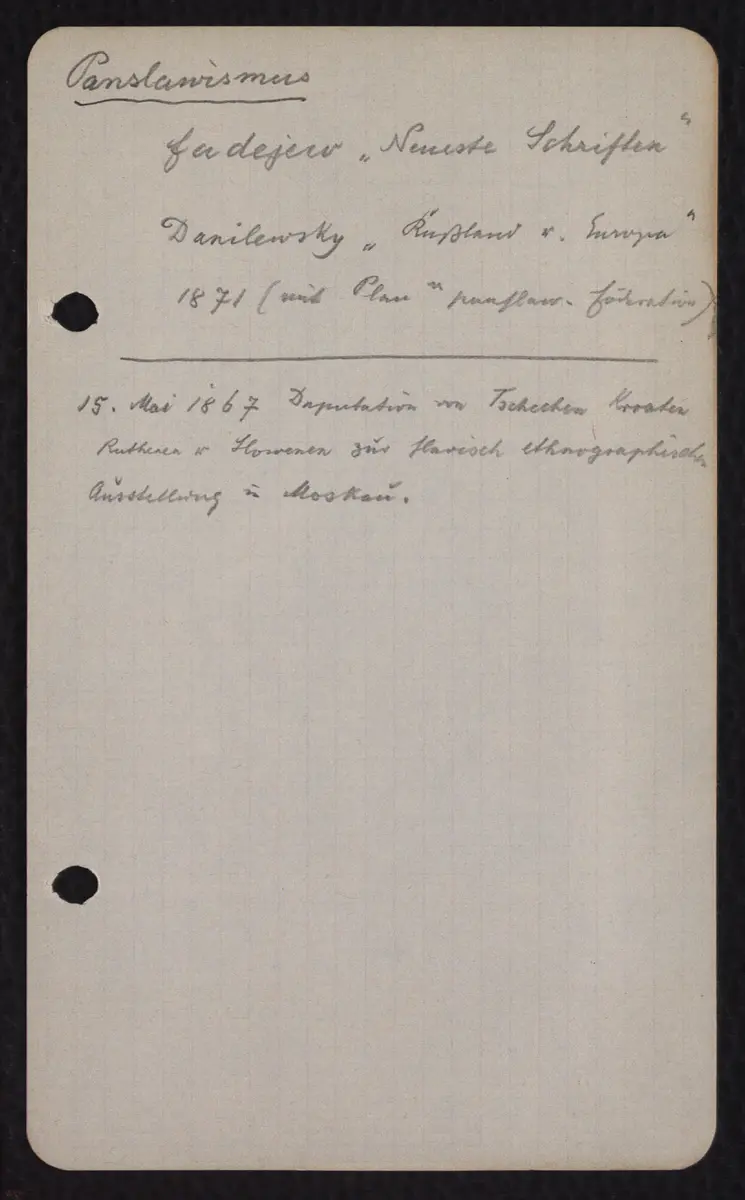 Panslawismus
Fadejew „Neueste Schriften“
Danilewsky „Rußland u. Europa“
1871 (mit Plan panslaw. Föderation)
15. Mai 1867 Deputation von Tschechen Kroaten
Ruthenen u Slowenen zur slavisch ethnographischen
Ausstellung in Moskau.